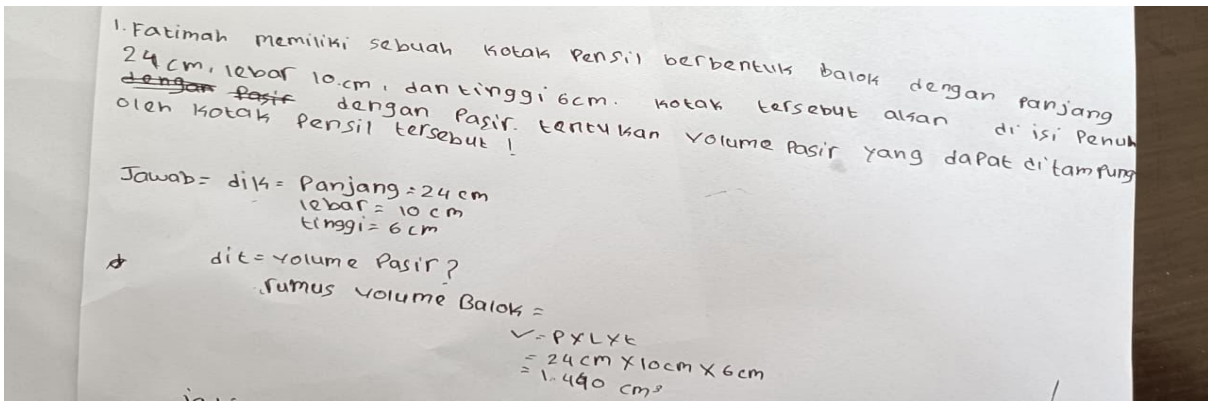 1. Fatimah memiliki sebuah kotak Pensil berbentuk balok dengan panjang
24 cm, lebar 10.cm, dan tinggi 6cm. kotak tersebut akan di isi Penuh
dengan Pasir dengan Pasir. tentukan volume Pasir yang dapat di tampung
oleh kotak Pensil tersebut!
Jawab = dik = Panjang = 24 cm
lebar = 10 cm
tinggi = 6 cm
dit = volume Pasir?
rumus volume Balok =
V = P x L x t
= 24 cm x 10cm x 6 cm
= 1.440 cm³